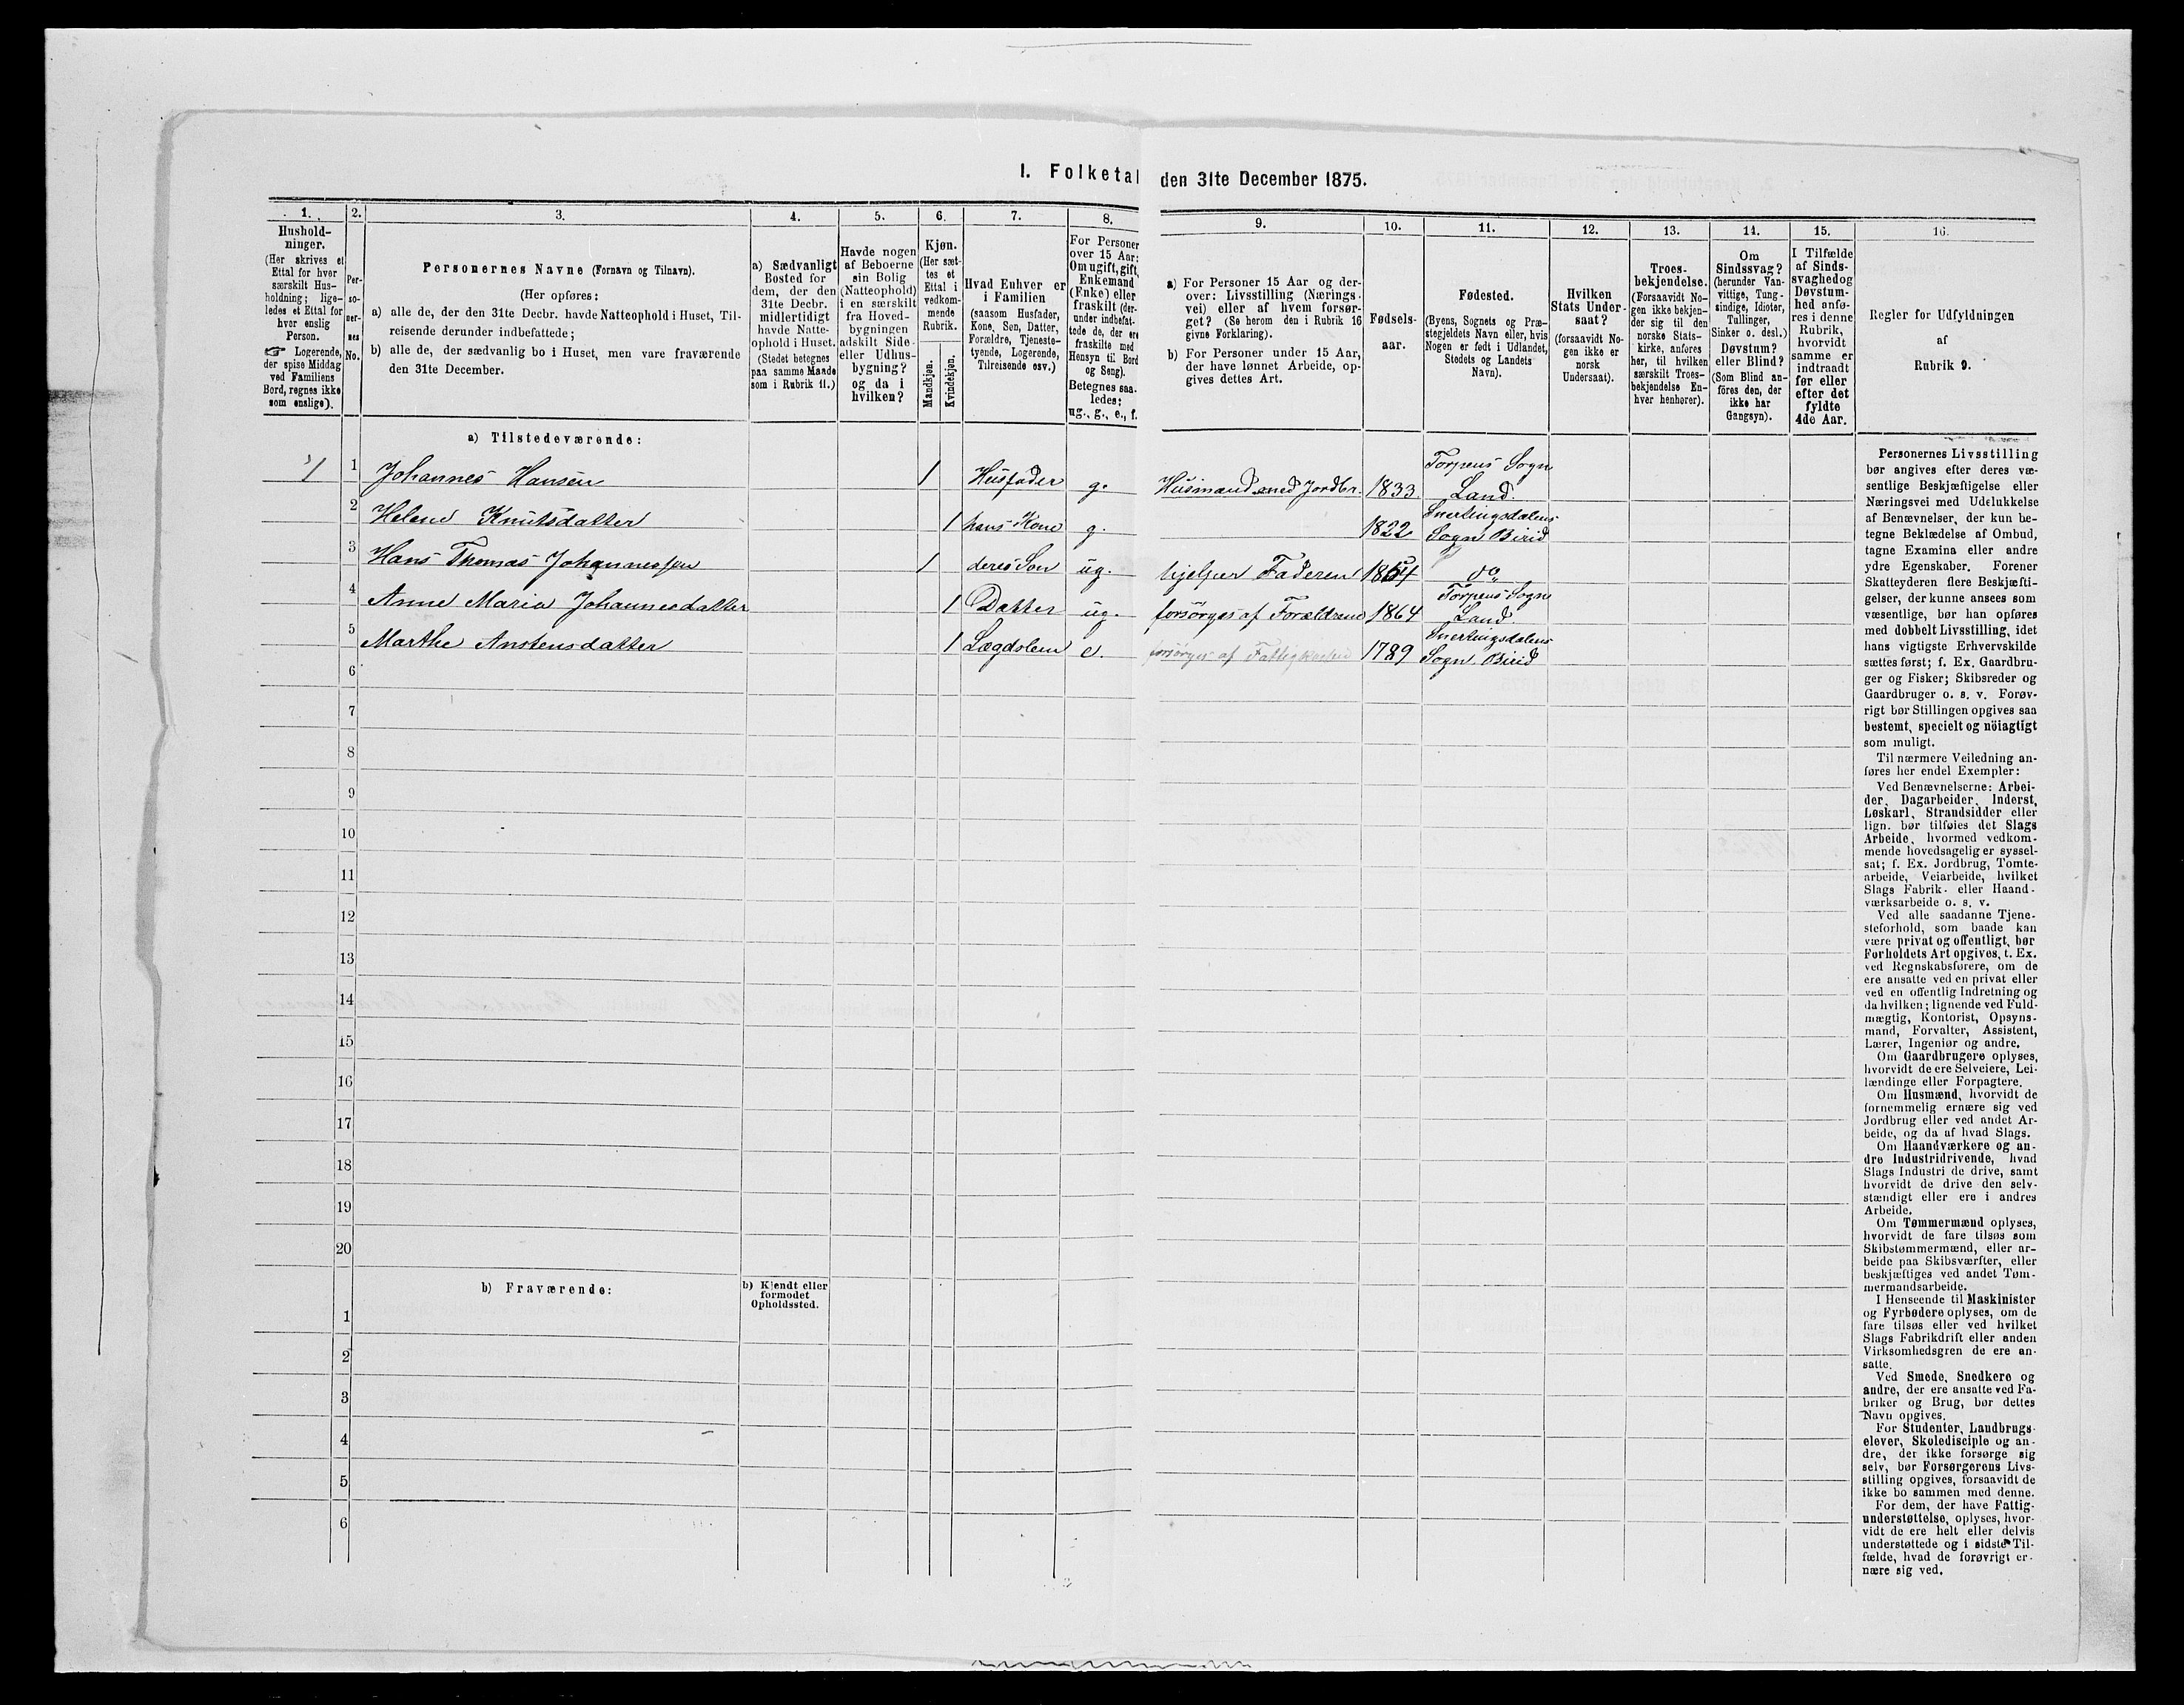 I. Folketal
den 31te December 1875.
1.
2.
3.
4.
5.
6.
7.
8.
9.
10.
11.
12.
13.
14.
15.
16.
Hushold-
ninger.
(Her skrives et
Ettal for hver
særskilt Hus-
holdning; lige-
ledes et Ettal for
hver enslig
Person.
☞ Logerende,
der spise Middag
ved Familiens
Bord, regnes ikke
som enslige).
Per-
so-
ner-
nes
No.
Personernes Navne (Fornavn og Tilnavn).
(Her opføres:
a) alle de, der den 31te Decbr. havde Natteophold i Huset, Til-
reisende derunder indbefattede;
b) alle de, der sædvanlig bo i Huset, men vare fraværende
den 31te December.
a) Sædvanligt
Bosted for
dem, der den
31te Decbr.
midlertidigt
havde Natte-
ophold i Huset.
(Stedet betegnes
paa samme Maade
som i Rubrik 11.)
Havde nogen
af Beboerne
sin Bolig
(Natteophold)
i en særskilt
fra Hoved-
bygningen
adskilt Side-
eller Udhus-
bygning?
og da i
hvilken?
Kjøn.
(Her sæt-
tes et
Ettal i
vedkom-
mende
Rubrik.
Mandkjøn.
Kvindekjøn.
Hvad Enhver er
i Familien
(saasom Husfader,
Kone, Søn, Datter,
Forældre, Tjeneste-
tyende, Logerende,
Tilreisende osv.)
For Personer
over 15 Aar:
Om ugift, gift,
Enkemand
(Enke) eller
fraskilt (der-
under indbefat-
tede de, der ere
fraskilte med
Hensyn til Bord
og Seng).
Betegnes saa-
ledes:
ug., g., e., f.
a) For Personer 15 Aar og der-
over: Livsstilling (Nærings-
vei) eller af hvem forsør-
get? (Se herom den i Rubrik 16
givne Forklaring).
b) For Personer under 15 Aar,
der have lønnet Arbeide, op-
gives dettes Art.
Fødsels-
aar.
Fødested.
(Byens, Sognets og Præ-
stegjeldets Navn eller, hvis
Nogen er født i Udlandet,
Stedets og Landets
Navn).
Hvilken
Stats Under-
saat?
(forsaavidt No-
gen ikke er
norsk
Undersaat).
Troes-
bekjendelse.
(Forsaavidt No-
gen ikke bekjen-
der sig til den
norske Stats-
kirke, anføres
her, til hvilken
særskilt Troes-
bekjendelse En-
hver henhører).
Om
Sindssvag?
(herunder Van-
vittige, Tung-
sindige, Idioter,
Tullinger,
Sinker o. desl.)
Døvstum?
eller Blind?
(Som Blind an-
föres den, der
ikke har
Gangsyn).
I Tilfælde
af Sinds-
svaghed og
Døvstum-
hed anfø-
res i denne
Rubrik,
hvorvidt
samme er
indtraadt
før eller
efter det
fyldte
4de Aar.
Regler for Udfyldningen
af
Rubrik 9.
a) Tilstedeværende:
1 1 Johannes Hansen 1 Husfader g. Husmand med Jordbr. 1833 Torpens Sogn
Land.
2 Helene Knutsdatter 1 hans Kone g. 1822 Snertingsdalens
Sogn Birid
3 Hans Thomas Johannessen 1 deres Søn ug. hjelper Faderen 1854 do
4 Anne Maria Johannesdatter 1 Datter ug. forsørges af Forældrene 1864 Torpens Sogn
Land.
5 Marthe Anstensdatter 1 Lægdslem e. forsørges af Fattigkassen 1789 Snertingsdalens
Sogn Birid
6
7
8
9
10
11
12
13
14
15
16
17
18
19
20
b) Fraværende:
b) Kjendt eller
formodet
Opholdssted.
1
2
3
4
5
6
Personernes Livsstilling
bør angives efter deres væ-
sentlige Beskjæftigelse eller
Næringsvei med Udelukkelse
af Benævnelser, der kun be-
tegne Beklædelse af Ombud,
tagne Examina eller andre
ydre Egenskaber. Forener
Skatteyderen flere Beskjæfti-
gelser, der kunne ansees som
væsentlige, bør han opføres
med dobbelt Livsstilling, idet
hans vigtigste Erhvervskilde
sættes først; f. Ex. Gaardbru-
ger og Fisker; Skibsreder og
Gaardbruger o. s. v. Forøv-
rigt bør Stillingen opgives saa
bestemt, specielt og nöiagtigt
som muligt.
Til nærmere Veiledning an-
føres her endel Exempler:
Ved Benævnelserne: Arbei-
der, Dagarbeider, Inderst,
Løskarl, Strandsidder eller
lign. bør tilføies det Slags
Arbeide, hvormed vedkom-
mende hovedsagelig er syssel-
sat; f. Ex. Jordbrug, Tomte-
arbeide, Veiarbeide, hvilket
Slags Fabrik- eller Haand-
værksarbeide o. s. v.
Ved alle saadanne Tjene-
steforhold, som baade kan
være privat og offentligt, bør
Forholdets Art opgives, t. Ex.
ved Regnskabsførere, om de
ere ansatte ved en privat eller
ved en offentlig Indretning og
da hvilken; lignende ved Fuld-
mægtig, Kontorist, Opsyns-
mand, Forvalter, Assistent,
Lærer, Ingeniør og andre.
Om Gaardbrugere oplyses,
hvorvidt de ere Selveiere, Lei-
lændinge eller Forpagtere.
Om Husmænd, hvorvidt de
fornemmelig ernære sig ved
Jordbrug eller ved andet Ar-
beide, og da af hvad Slags.
Om Haandværkere og an-
dre Industridrivende, hvad
Slags Industri de drive, samt
hvorvidt de drive den selv-
stændigt eller ere i andres
Arbeide.
Om Tømmermænd oplyses,
hvorvidt de fare tilsøs som
Skibstømmermænd, eller ar-
beide paa Skibsværfter, eller
beskjæftiges ved andet Tøm-
mermandsarbeide.
I Henseende til Maskinister
og Fyrbødere oplyses, om de
fare tilsøs eller ved hvilket
Slags Fabrikdrift eller anden
Virksomhedsgren de ere an-
satte.
Ved Smede, Snedkere og
andre, der ere ansatte ved Fa-
briker og Brug, bør dettes
Navn opgives.
For Studenter, Landbrugs-
elever, Skoledisciple og an-
dre, der ikke forsørge sig
selv, bør Forsørgerens Livs-
stilling opgives, forsaavidt de
ikke bo sammen med denne.
For dem, der have Fattig-
understøttelse, oplyses, hvor-
vidt de ere helt eller delvis
understøttede og i sidste Til-
fælde, hvad de forøvrigt er-
nære sig ved.